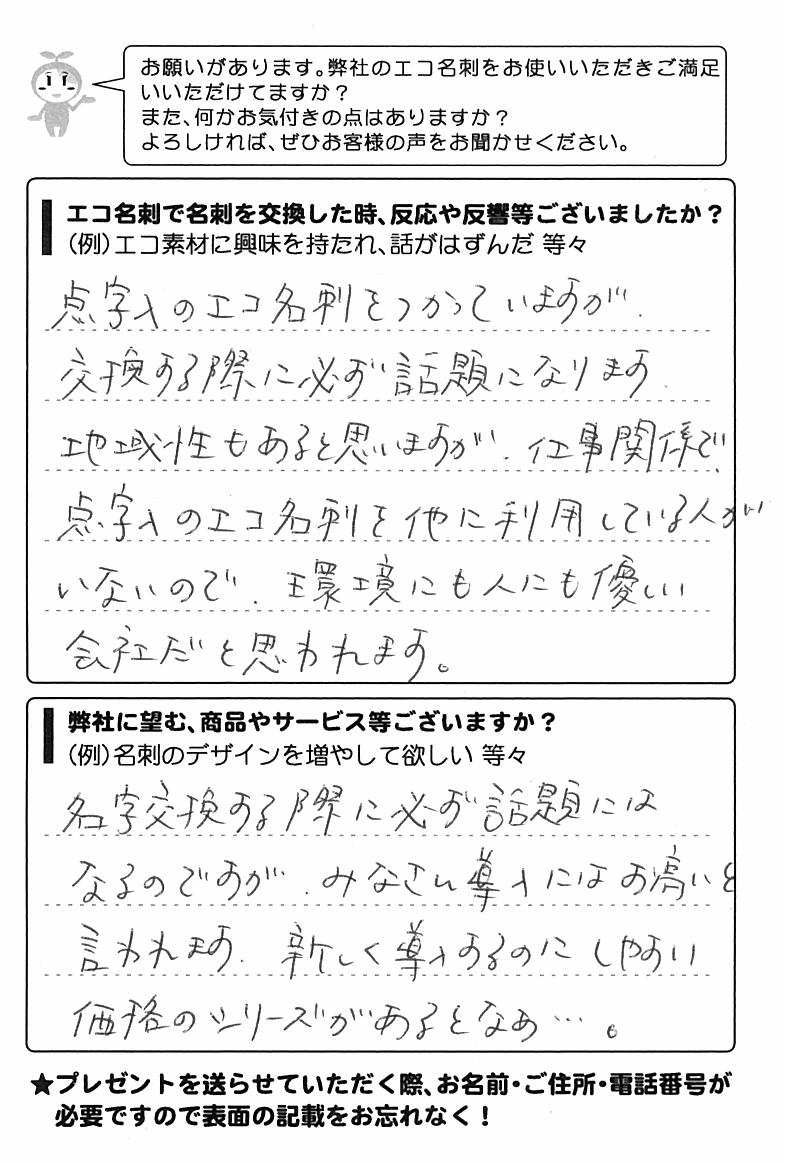 お願いがあります。弊社のエコ名刺をお使いいただきご満足
いいただけてますか？
また、何かお気付きの点はありますか？
よろしければ、ぜひお客様の声をお聞かせください。
エコ名刺で名刺を交換した時、反応や反響等ございましたか？
（例）エコ素材に興味を持たれ、話がはずんだ 等々
点字入のエコ名刺をつかっていますが、
交換する際に必ず話題になります。
地域性もあると思いますが、仕事関係で、
点字入のエコ名刺を他に利用している人が
いないので、環境にも人にも優しい
会社だと思われます。
弊社に望む、商品やサービス等ございますか？
（例）名刺のデザインを増やして欲しい 等々
名字交換する際に必ず話題には
なるのですが、みなさん導入にはお高いと
言われます。新しく導入するのにしやすい
価格のシリーズがあるとなぁ…。
★プレゼントを送らせていただく際、お名前・ご住所・電話番号が
必要ですので表面の記載をお忘れなく！